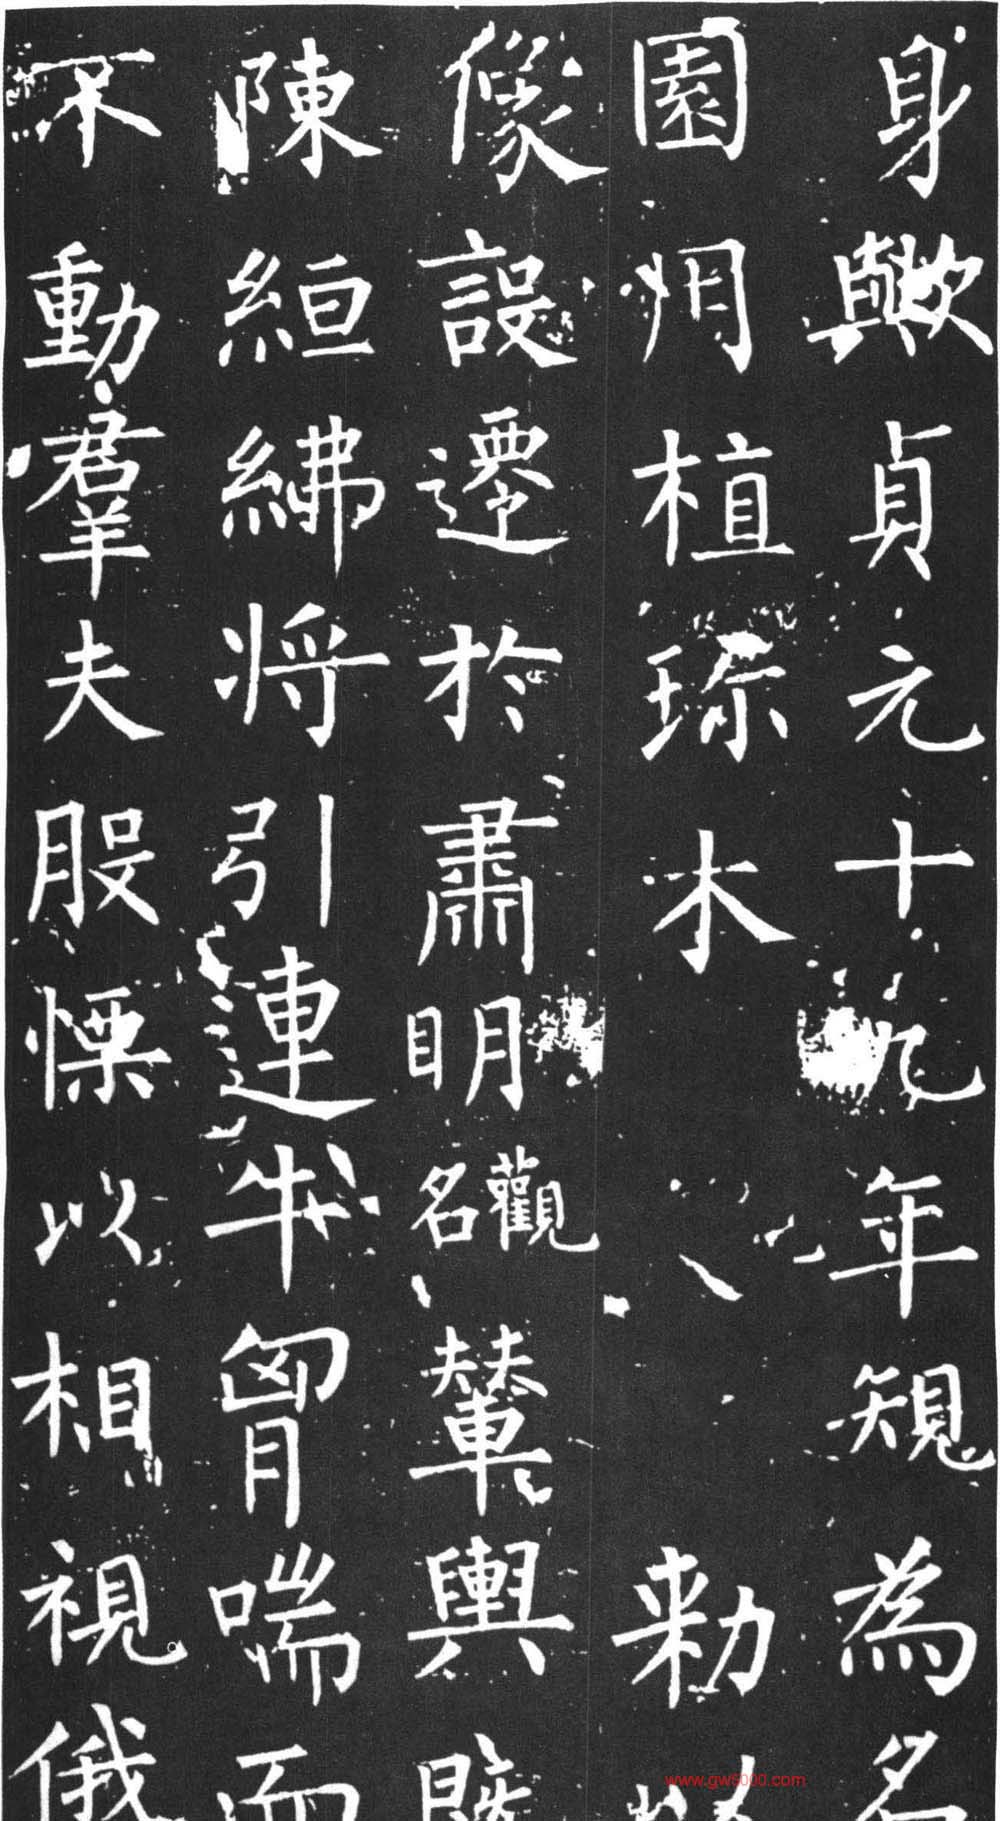 身歟貞元十九年規為名
園用植琮木 勅以
像設遷於肅明觀名輦輿既
陳絙紼將引連牛胷喘而
不動羣夫股慄以相視俄
www.gw5000.com